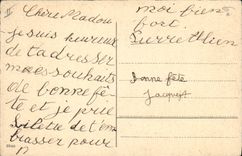 Chère Madou
je suis heureux
de t'adresser
mes souhaits
de bonne fê-
te et je prie
de t'em
brasser pour
moi bien
fort.
Bonne fête
Jacques